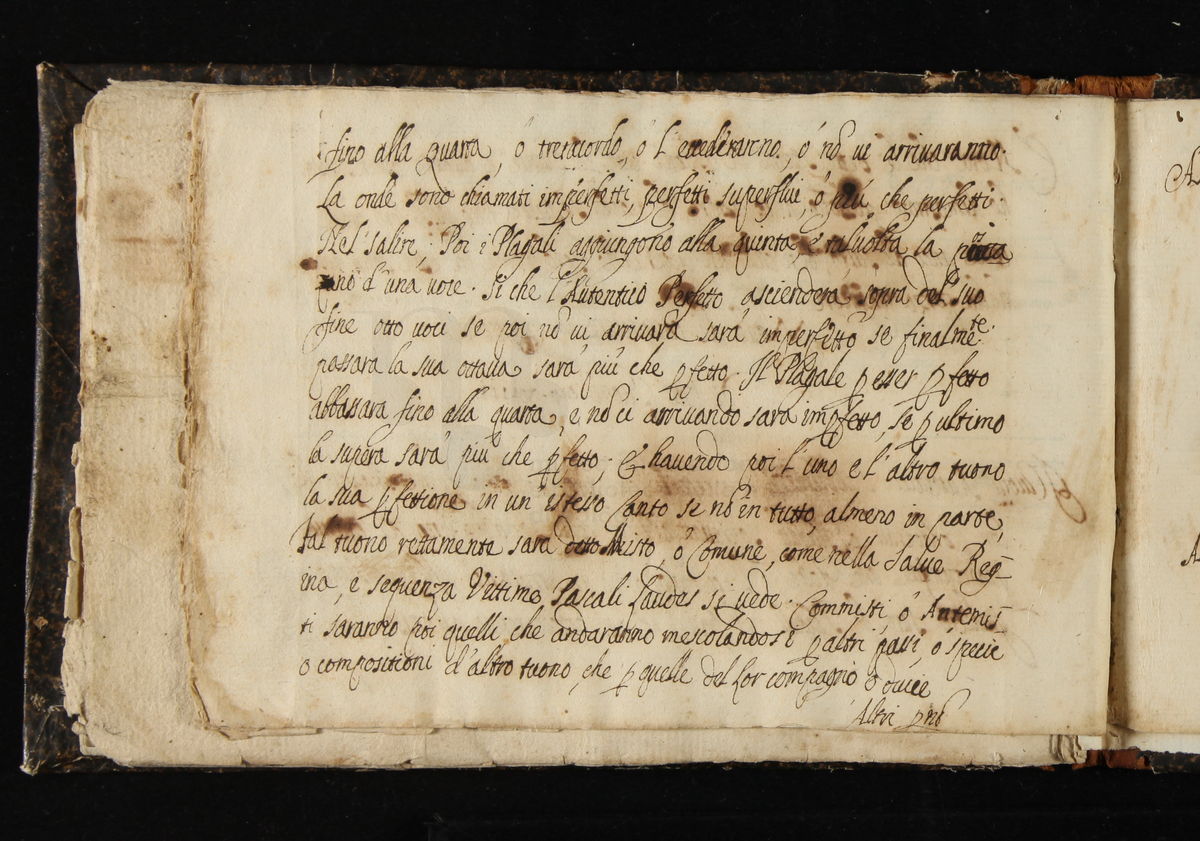 fino alla quarta, ò tretacordo, ò l'eccederanno, ò nõ vi arrivaranno.
La onde sono chiamati imperfetti, perfetti superflui, ò più che perfetti.
Nel salire, Poi i Plagali aggiungono alla quinta, e taluolta la
fino d'una voce. Si che l'Autentico Perfetto ascienderà sopra del suo
fine otto voci se poi nõ vi arrivarà sarà imperfetto, se finalmẽte.
passara la sua ottaua sarà più che pfetto. Il Plagale p esser pfetto
abbassara fino alla quarta, e nõ ci arrivando sarà impfetto, se p ultimo
la supera sarà più che pfetto, & havendo poi l'uno e l'altro tuono
la sua pfettione in un' istesso Canto se nõ in tutto, almeno in parte,
tal tuono rettamente sarà detto Misto, ò Comune, come nella Salue Reg-
ina, e sequenza Vittime Pascali Laudes si vede. Commisti ò Antemis-
ti saranno poi quelli che andaranno mescolandosi p altri passi, ò specie
o compositioni d'altro tuono, che p quelle del lor compagno ò
Altri pnõ